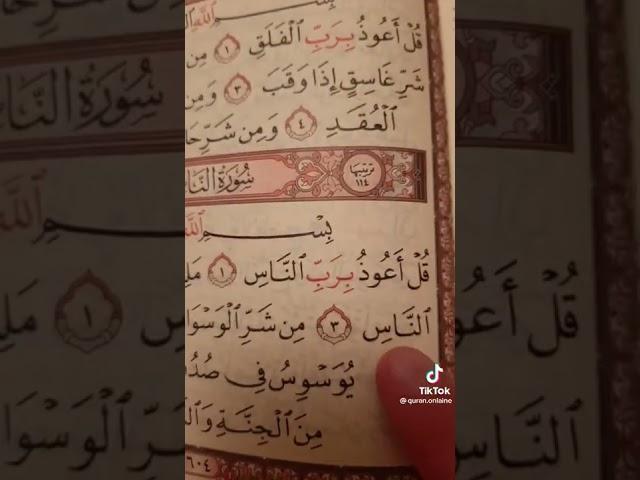 بِسْمِ ٱللَّهِ
قُلْ أَعُوذُ بِرَبِّ ٱلْفَلَقِ ١ مِن
شَرِّ غَاسِقٍ إِذَا وَقَبَ ٣ وَمِن
ٱلْعُقَدِ ٤ وَمِن شَرِّ حَا
ترتيبها ١١٤ سُورَةُ ٱلنَّا
بِسْمِ ٱللَّهِ
قُلْ أَعُوذُ بِرَبِّ ٱلنَّاسِ ١ مَلِ
ٱلنَّاسِ ٣ مِن شَرِّ ٱلْوَسْوَا
يُوَسْوِسُ فِى صُدُ
مِنَ ٱلْجِنَّةِ وَٱل
٦٠٤
TikTok
@quran.onlaine